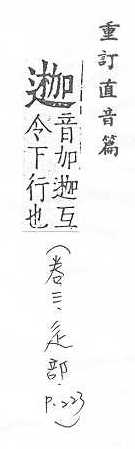 重訂直音篇
䢔
音加䢔互
令下行也
(卷三、辵部. P.223)